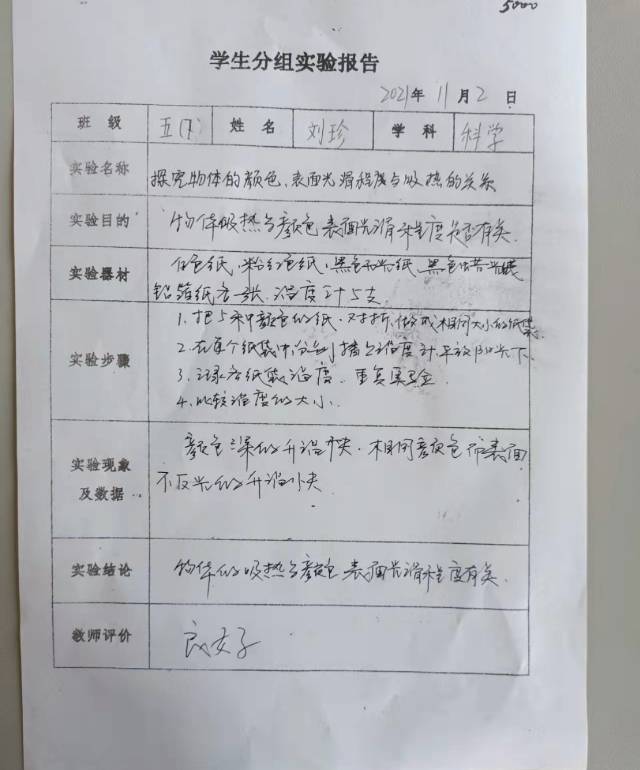 5000
学生分组实验报告
2021年 11月2日
班级 五(1) 姓名 刘珍 学科 科学
实验名称 探究物体的颜色、表面光滑程度与吸热的关系
实验目的 物体吸热与颜色表面光滑程度是否有关.
实验器材 白色纸、粉红色纸、黑色 光纸、黑色蜡光纸
铝箔纸各一张、温度计5支.
实验步骤
1. 把5种颜色的纸、对折,做成相同大小的纸袋.
2. 在每个纸袋中分别插上温度计平放阳光下.
3. 记录各纸袋温度. 重复实验
4. 比较温度的大小.
实验现象及数据
颜色深的升温快. 相同颜色 而表面
不反光的升温快
实验结论 物体的吸热与颜色表面光滑程度有关.
教师评价 良好